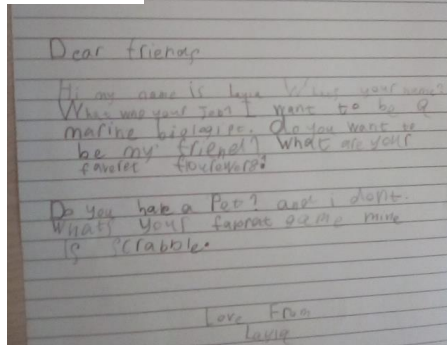 Dear friends
Hi my name is What your name?
What was your I want to be a
marine biologist. do you want to
be my friend? What are your
favoret
Do you have a Pet? and i dont.
Whats your favorat game mine
is scrabble.
Love From